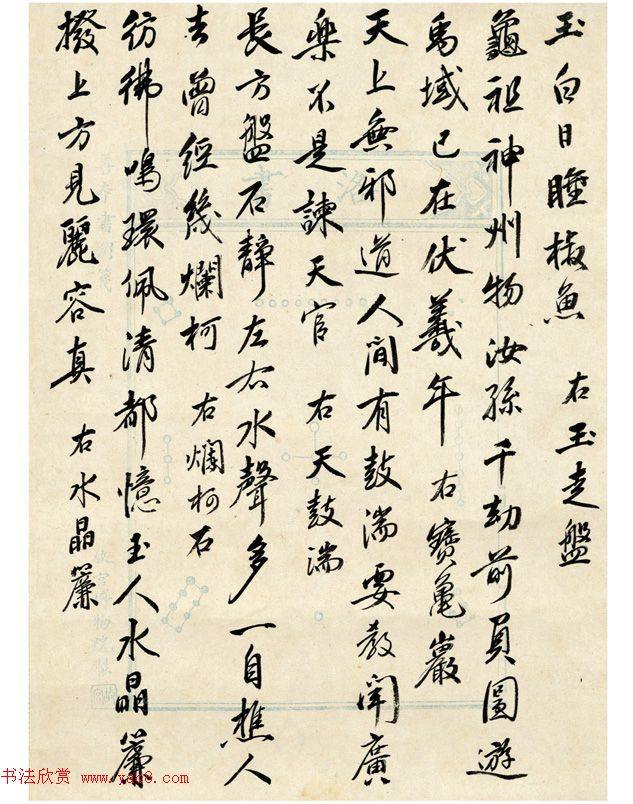 玉白日瞳椒魚　右玉走盤
龜祖神州物汝孫千劫前負圖遊
馬域已在伏羲年　右寶龜巖
天上無邪道人間有鼓湍要教聞廣
樂不是諫天官　右天鼓湍
長方盤石靜左右水聲多一自樵人
去曾經幾爛柯　右爛柯石
彷彿鳴環佩清都憶玉人水晶簾
撥上方見麗容真　右水晶簾
书法欣赏 www.yac8.com